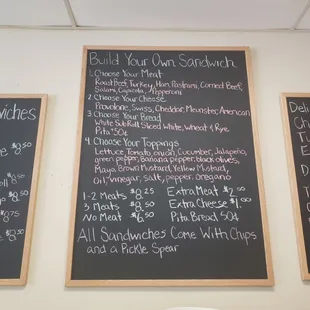 Build Your Own Sandwich
1. Choose Your Meat
Roast Beef, Turkey, Ham, Pastrami, Corned Beef,
Salami, Capicola, Pepperoni
2. Choose Your Cheese
Provolone, Swiss, Cheddar, Meunster, American
3. Choose Your Bread
White Sub Roll Sliced White, Wheat & Rye
Pita *50¢
4. Choose Your Toppings
Lettuce, Tomato, onion, Cucumber, Jalapeño,
green pepper, Banana pepper, black olives,
Mayo, Brown Mustard, Yellow Mustard,
Oil, Vinegar, salt, pepper, oregano
1-2 Meats $8.25 Extra Meat $2.00
3 Meats $8.50 Extra Cheese $1.00
No Meat $6.50 Pita Bread 50¢
All Sandwiches Come With Chips
and a Pickle Spear
wiches
$8.50
$8.50
$8.75
$8.50
Deli